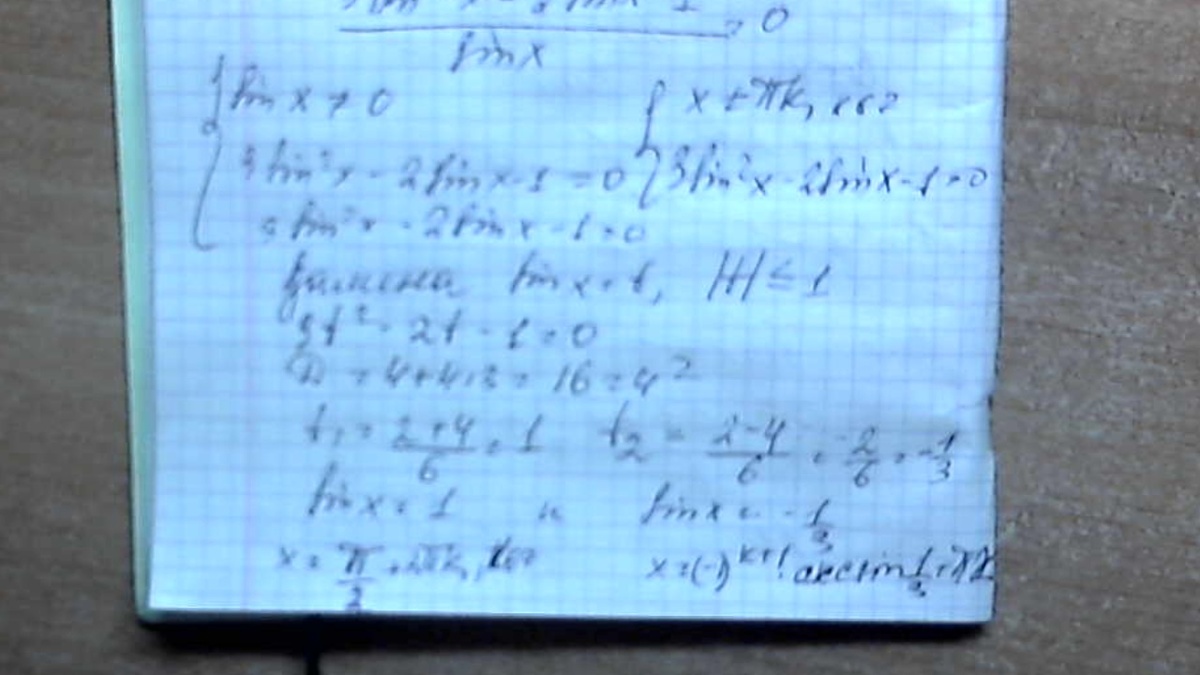 sin x = 0
sin x ≠ 0 x ≠ πk, k∈Z
3sin²x - 2sin x - 1 = 0 3sin²x - 2sin x - 1 = 0
3sin²x - 2sin x - 1 = 0
Замена sin x = t, |t| ≤ 1
3t² - 2t - 1 = 0
D = 4+4·3 = 16 = 4²
t₁ = (2+4)/6 = 1 t₂ = (2-4)/6 = -2/6 = -1/3
sin x = 1 и sin x = -1/3
x = π/2 + 2πk, k∈Z x = (-1)^(k+1) arcsin 1/3 + πk